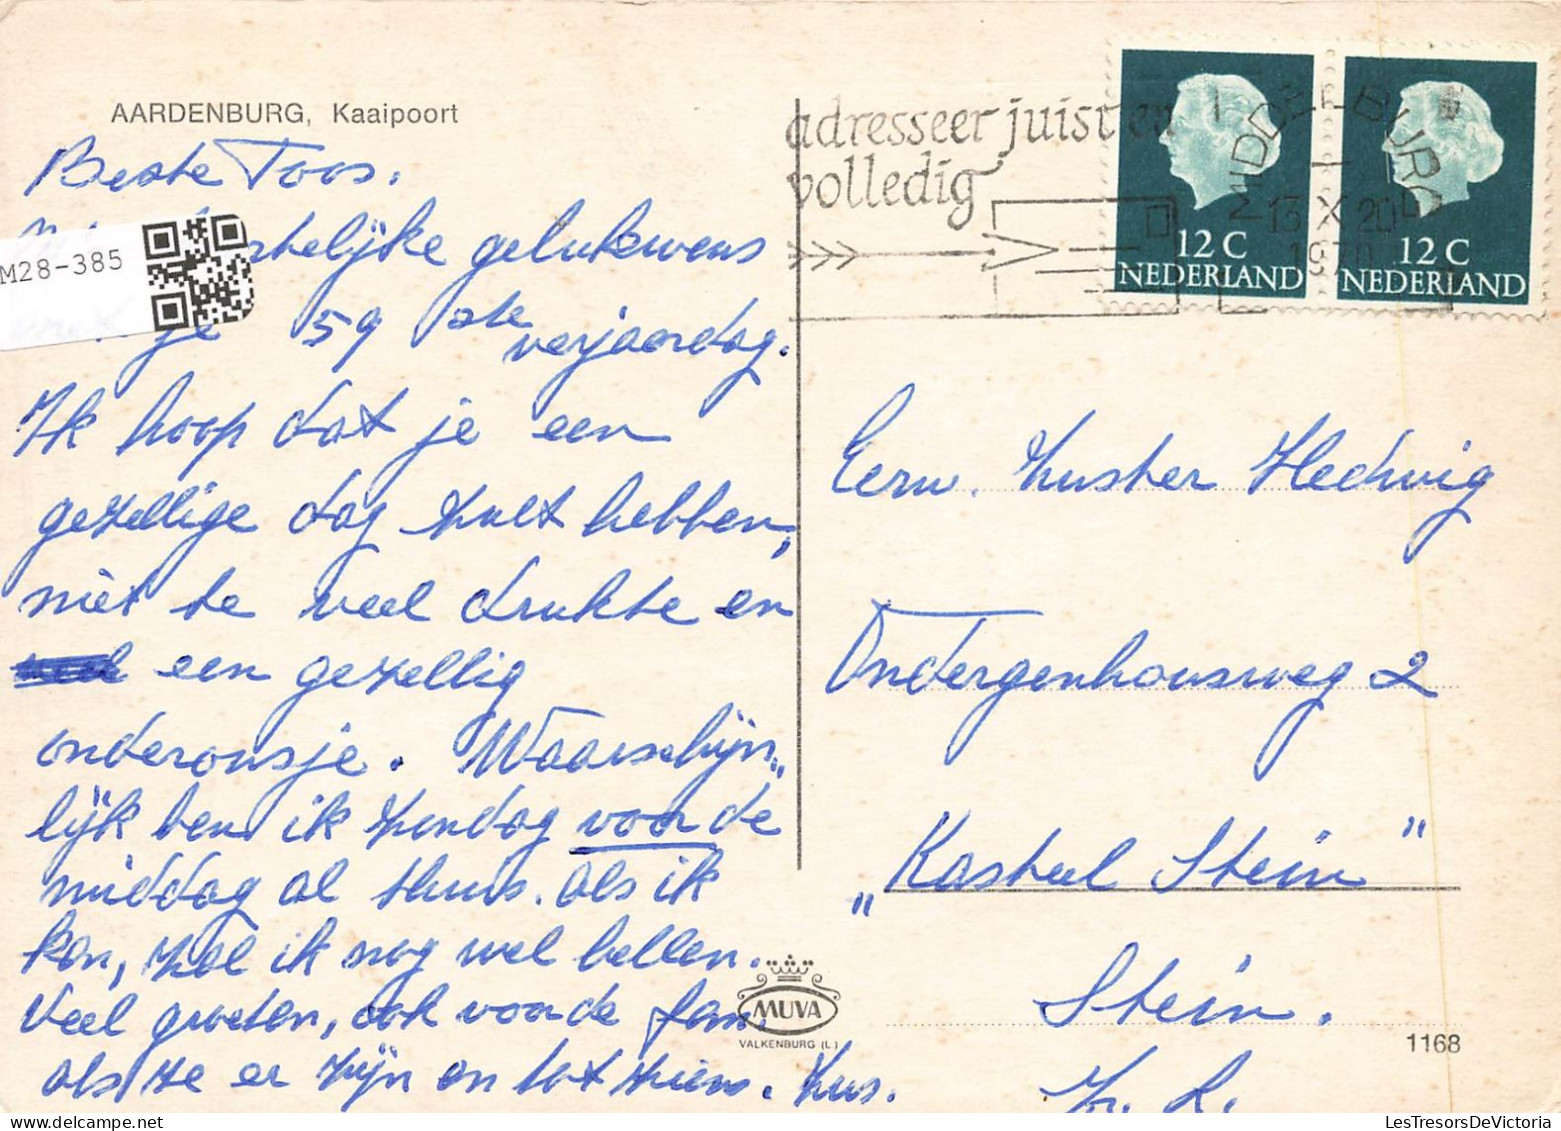 AARDENBURG, Kaaipoort
Beste Toos.
gelukwens
M28-385
je 59 ste verjaardag.
Ik hoop dat je een
gezellige dag zult hebben,
niet te veel drukte en
een gezellig
onderonsje. Waarschijn„
lijk ben ik zondag voor de
middag al thuis. Als ik
kan, zal ik nog wel bellen.
Veel groeten, ook voor de fam.
als ze er zijn en tot ziens. Zus.
adresseer juist en
volledig
MIDDELBURG
13 X 20
1970
12 C
NEDERLAND
12 C
NEDERLAND
Eerw. Zuster Hedwig
Ondergenhousweg 2
„Kasteel Stein"
Stein.
Z. L.
MUVA
VALKENBURG (L)
1168
LesTresorsDeVictoria